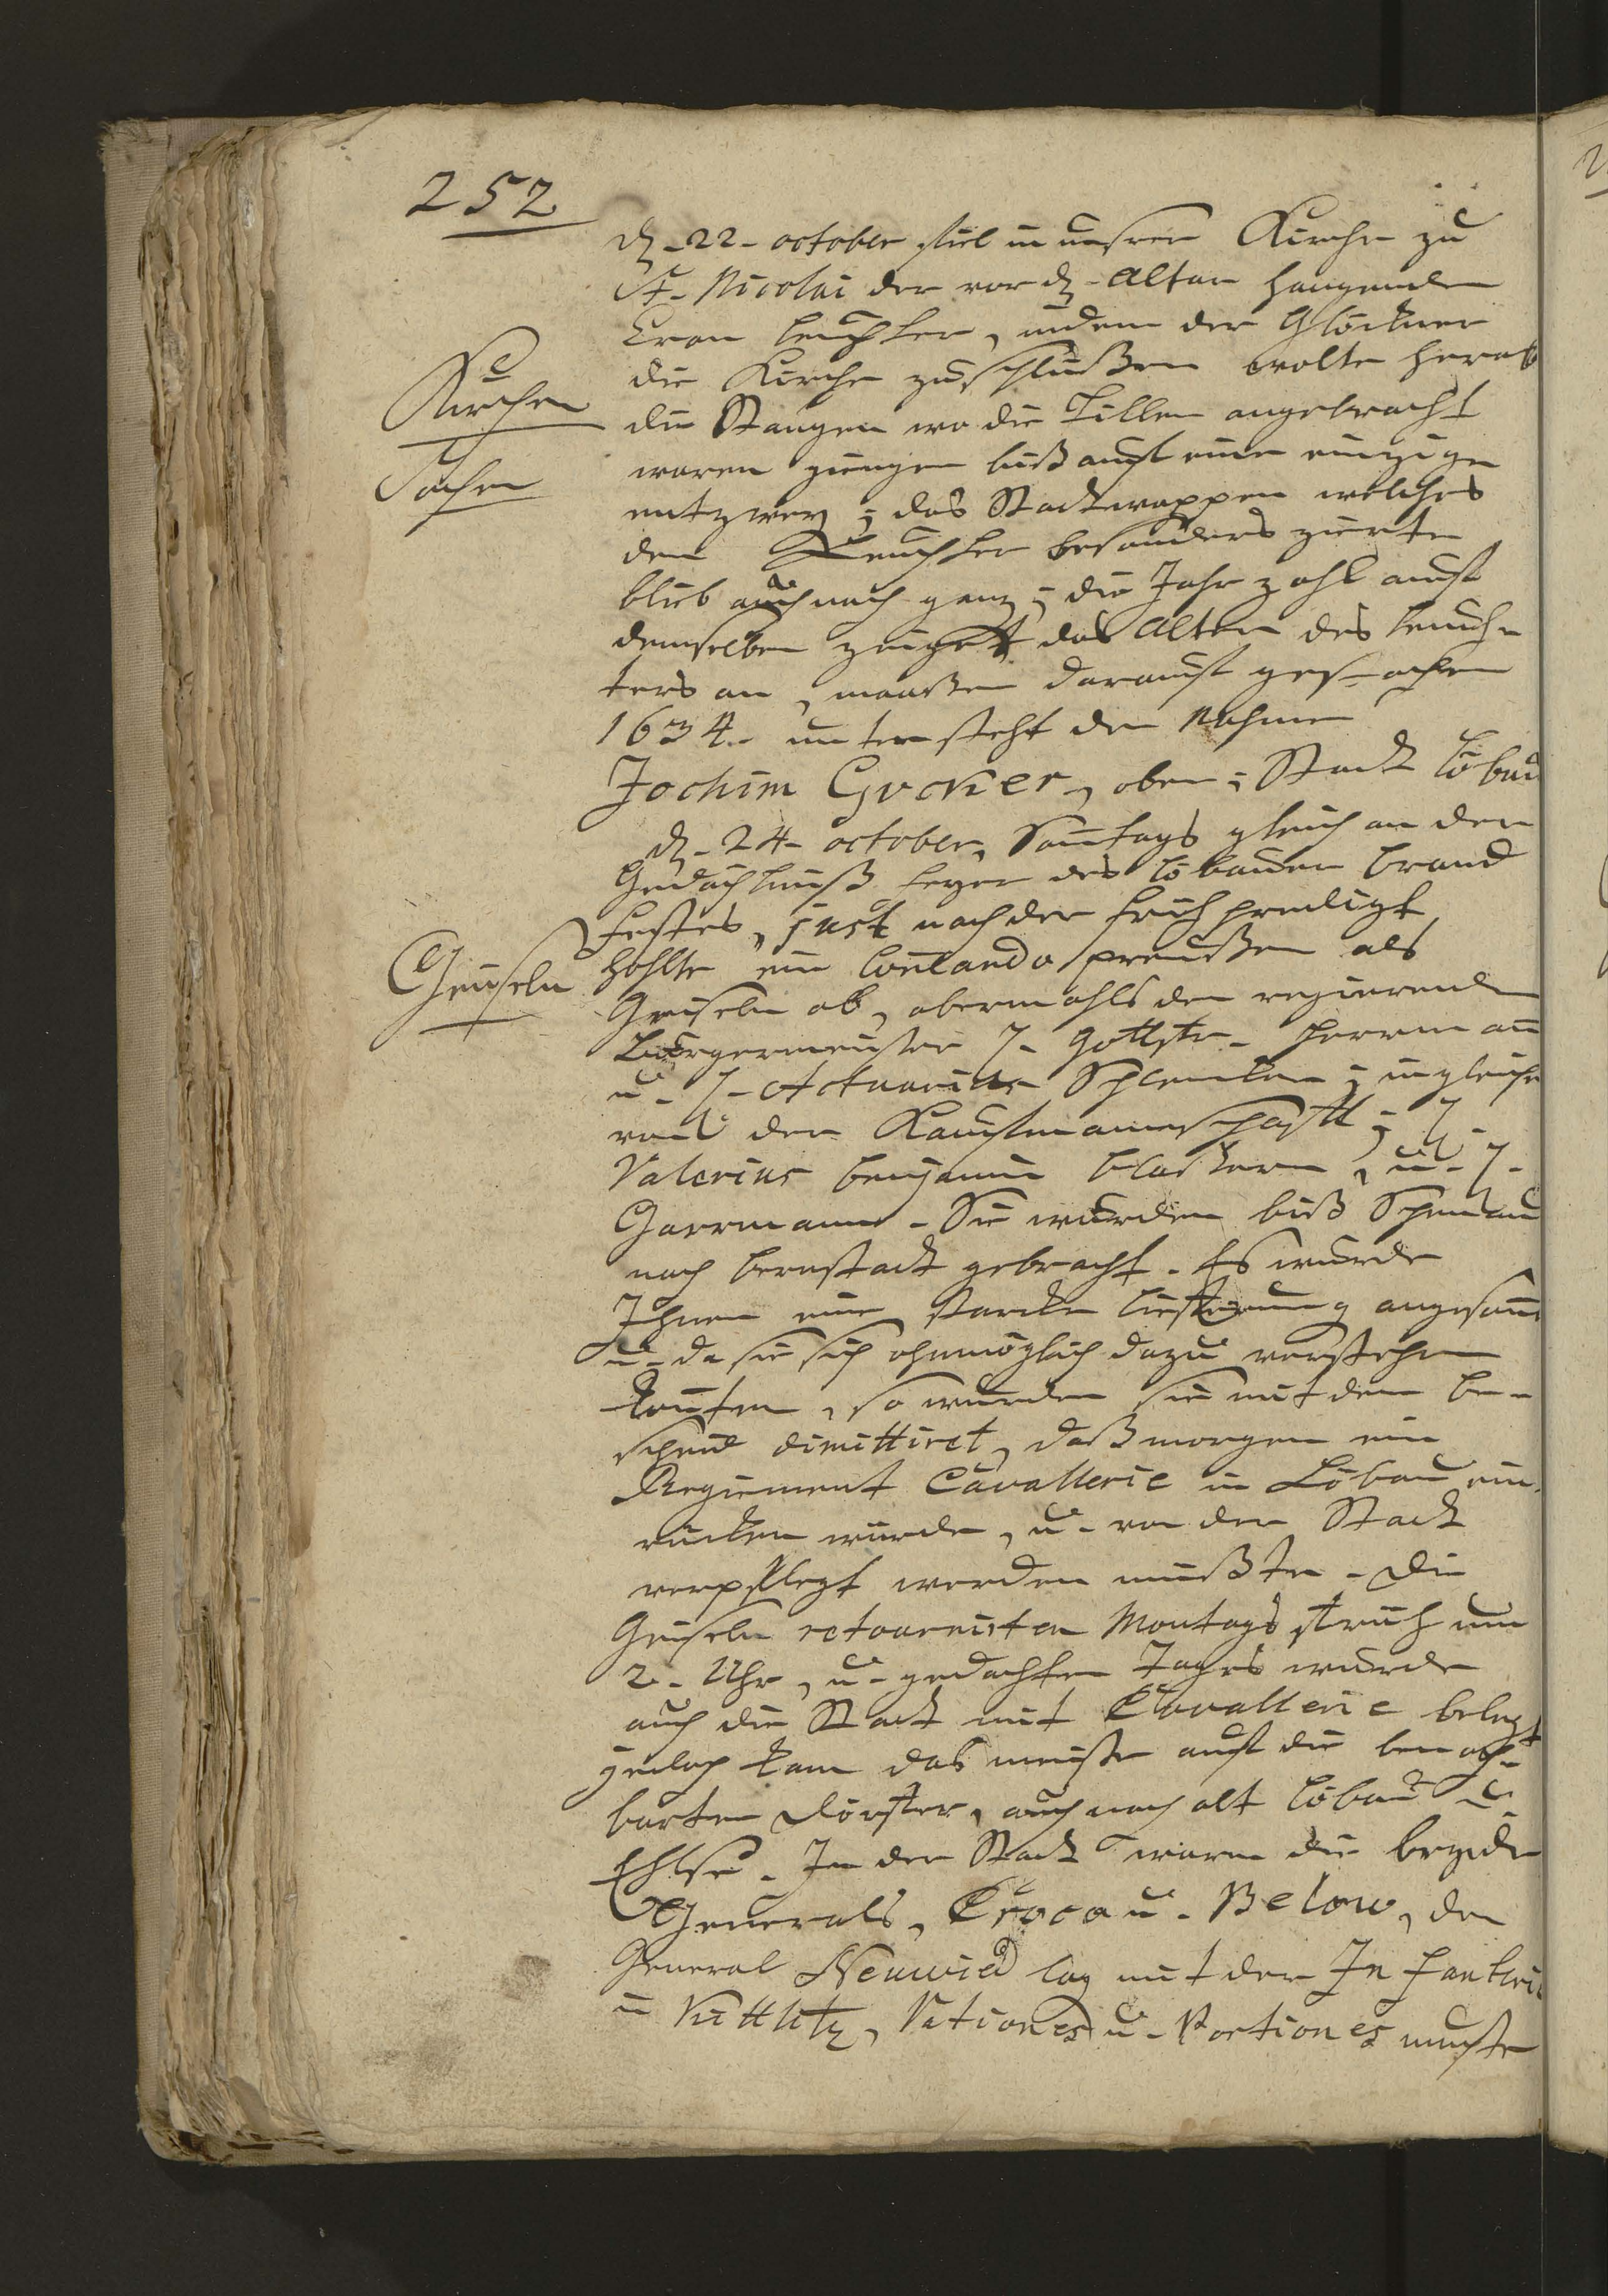 252
d. 22. october fiel in unsrer Kirche zu
St. Nicolai der vor d. Altar hangende
Cron leuchter, indem der Glöckner
die Kirche zuschlüßen wolte herab
die Stangen wo die Tillen angebracht
waren giengen biß auf eine einzige
entzwey; das Stadtwappen welches
den Leuchter besonders zierte
blieb auch noch ganz; die Jahrzahl auf
demselben zeiget das Alter des leuch-
ters an, maaßen darauf gestochen
1634. unten steht der Nahme
Jochim Gvcker, oben: Stadt Löbau
Kirchen
Sachen
d. 24. october, Sontags gleich an der
Gedächtniß feyer des Löbauer brand
Festes, just nach der frühpredigt
hohlte ein Comando preußen als
Geiseln ab, abermahls den regierende
Bürgermeister H. Gottfr. Herrmann
u. H. Actuarius Schlenker; ingleich
von der Kaufmannschafft; H.
Valerius benjamin blackern, u. H.
Garrmann. Sie wurden biß Schönau
nach bernstadt gebracht. Es wurde
Ihnen eine starcke lieferung angesonn
u. da sie sich ohnmöglich dazu verstehen
konten, so wurden sie mit dem be-
scheid dimittiret, daß morgen ein
Regiment Cavallerie in Löbau ein
rücken würde, u. von der Stadt
verpflegt werden müßte. Die
Geiseln retournirten Montags früh um
2. Uhr, u. gedachten Tages wurde
auch die Stadt mit Cavallerie belegt
jedoch kam das meiste auf die benach-
barten Dörffer, auch nach alt Löbau u.
Ehlse. In der Stadt waren die beyde
Generals, Croca u. Below, der
General Neuwied lag mit der Infanterie
in Kittlitz, Rationes u. Portiones muste
Geiseln